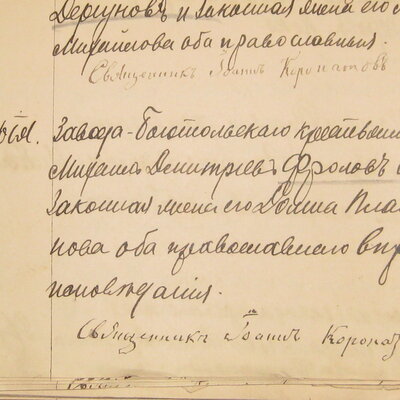 Дергуновъ и законная жена его
Михайлова оба православныя.
Священникъ Іоаннъ Коронатовъ
Завода-Боготольскаго крестьянин
Михаилъ Дмитріевъ Фроловъ
Законная жена его Домна Пла
нова оба православнаго в
исповѣданія.
Священникъ Іоаннъ Корона